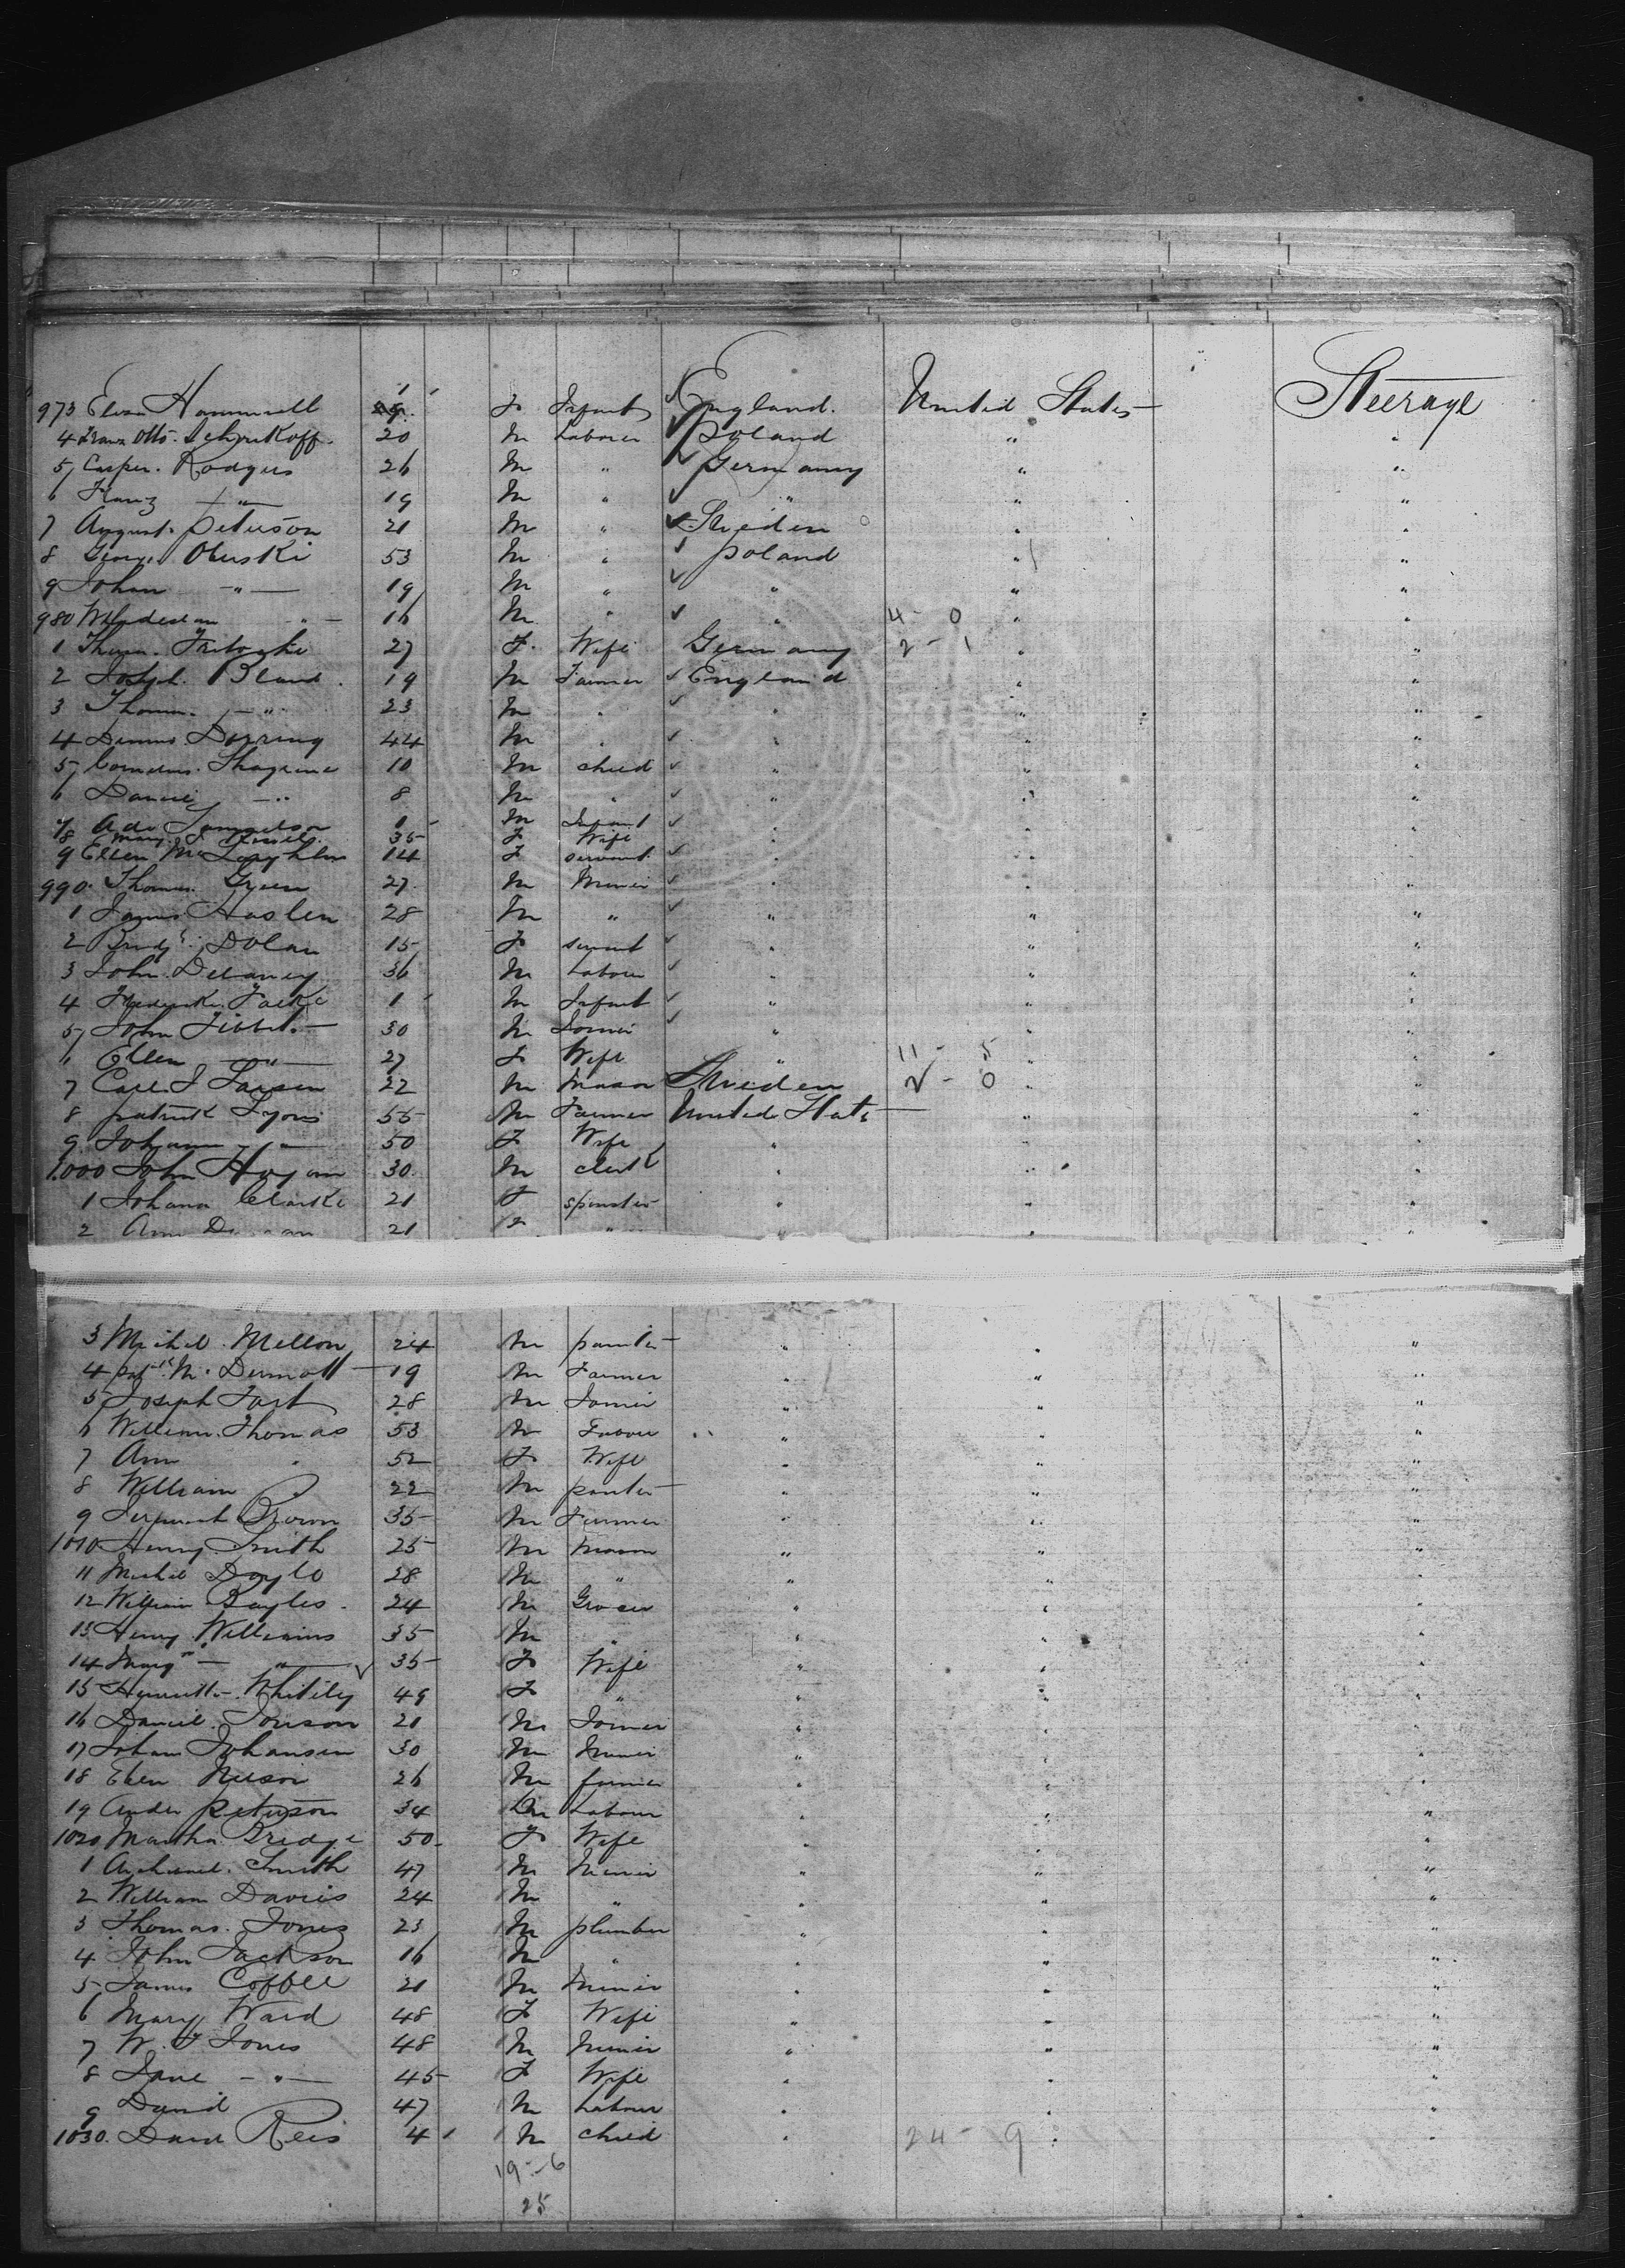 973 Eliza Hammill 1 F Infant ✓ England. United States Steerage
4 Franz Otto 20 M Labourer ✓ Poland " "
5 Casper Rodgers 26 M " ✓ Germany " "
6 Franz — " — 19 M " ✓ " " "
7 August Peterson 21 M " ✓ Sweden " "
8 Oluski 53 M " ✓ Poland " "
9 Johan — " — 19 M " ✓ " " "
980 " — 16 M " ✓ " 4 - 0 " "
1 27 F Wife Germany 2 - 1 " "
2 Joseph Bland 19 M Farmer ✓ England " "
3 Thomas — " 23 M " ✓ " " "
4 Dennis 44 M " ✓ " " "
5 Cornelius 10 M child ✓ " " "
6 Daniel — " 8 M " ✓ " " "
7 Ada Samuelson M Infant ✓ " " "
8 Mary 35 F Wife " " "
9 Ellen McLoughlin 14 F servant ✓ " " "
990 Thomas Green 27 M Miner ✓ " " "
1 James Haslen 28 M " ✓ " " "
2 Bridgt Dolan 15 F servant ✓ " " "
3 John Delaney 36 M Labour ✓ " " "
4 1 M Infant ✓ " " "
5 John 30 M Joiner ✓ " " "
6 Ellen — " — 27 F Wife " 11 - 5 " "
7 Carl J Larsen 22 M Mason Sweden 2 - 0 " "
8 Patrick Lyons 55 M Farmer United States " "
9 Johanna — " — 50 F Wife " " "
1.000 John Hogan 30 M clerk " " "
1 Johana Clarke 21 F spinster " " "
2 Ann 21 F " " "
3 Michel Mellon 24 M painter " " "
4 Patk McDermott 19 M Farmer " " "
5 Joseph 28 M Joiner " " "
6 William Thomas 53 M Labour " " "
7 Ann " 52 F Wife " " "
8 William " 22 M painter " " "
9 Brown 35 M Farmer " " "
1010 Henry Smith 25 M Mason " " "
11 Michel Doyle 28 M " " " "
12 William Bayles 24 M Grocer " " "
13 Henry Williams 35 M " " " "
14 Margt — " — 35 F Wife " " "
15 Whitely 49 F " " " "
16 Daniel Jonson 21 M Joiner " " "
17 Johan Johansen 30 M Miner " " "
18 Nelson 26 M farmer " " "
19 Ander Peterson 34 M Labour " " "
1020 Martha Bridge 50 F Wife " " "
1 Smith 47 M Miner " " "
2 William Davies 24 M " " " "
3 Thomas Jones 23 M plumber " " "
4 John Jackson 16 M " " " "
5 James Coffee 21 M Miner " " "
6 Mary Ward 48 F Wife " " "
7 W. Jones 48 M Miner " " "
8 Jane — " — 45 F Wife " " "
9 David 47 M Labour " " "
1030. David Reis 4 M child " 24 - 9 "
19 - 6
25